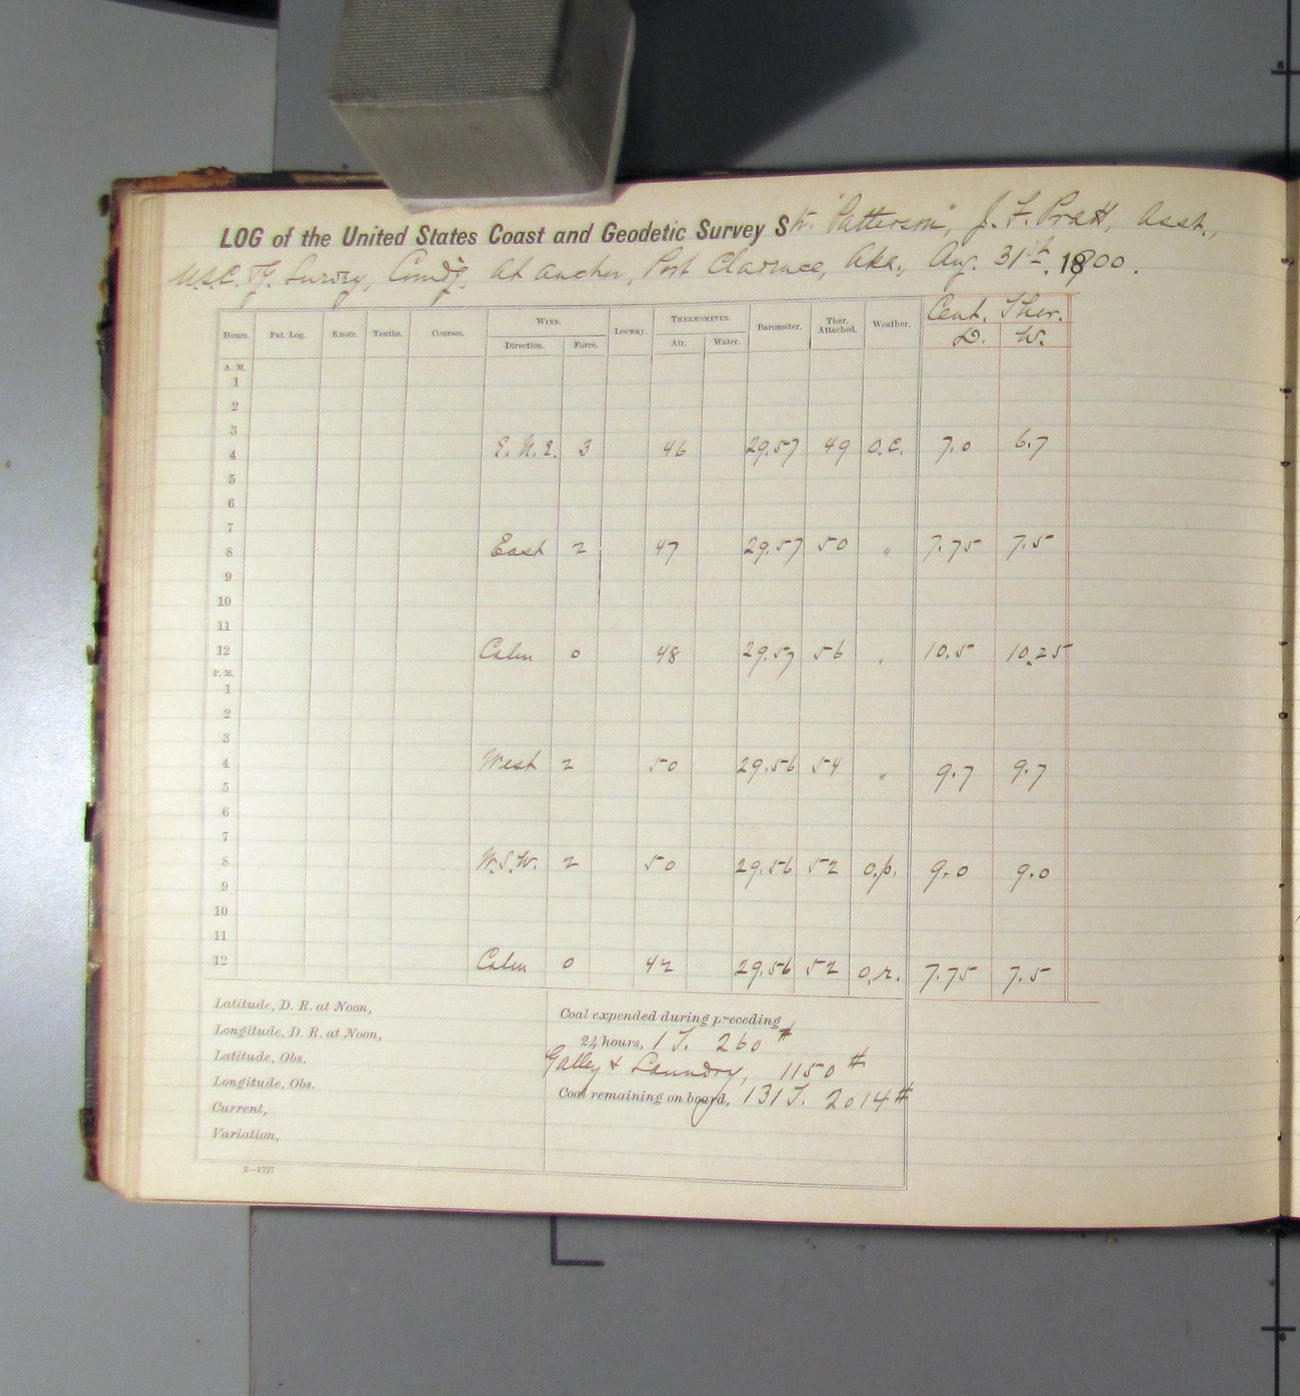 LOG of the United States Coast and Geodetic Survey Str. "Patterson", J. F. Pratt, Asst.,
U.S.C. & G. Survey, Comd'g, At anchor, Port Clarence, Aka., Aug. 31st, 1900.
Hours. Pat. Log. Knots. Tenths. Courses. WIND. Leeway. THERMOMETER. Barometer. Ther. Attached. Weather. Cent. Ther.
Direction. Force. Air. Water. D. W.
A. M.
1
2
3
4 E.N.E. 3 46 29.57 49 O.C. 7.0 6.7
5
6
7
8 East 2 47 29.57 50 " 7.75 7.5
9
10
11
12 Calm 0 48 29.57 56 " 10.5 10.25
P. M.
1
2
3
4 West 2 50 29.56 54 " 9.7 9.7
5
6
7
8 W.S.W. 2 50 29.56 52 O.p. 9.0 9.0
9
10
11
12 Calm 0 42 29.56 52 O.r. 7.75 7.5
Latitude, D. R. at Noon,
Longitude, D. R. at Noon,
Latitude, Obs.
Longitude, Obs.
Current,
Variation,
Coal expended during preceding
24 hours, 1 T. 260 #
Galley & Laundry, 1150 #
Coal remaining on board, 131 T. 2014 #
2—1727